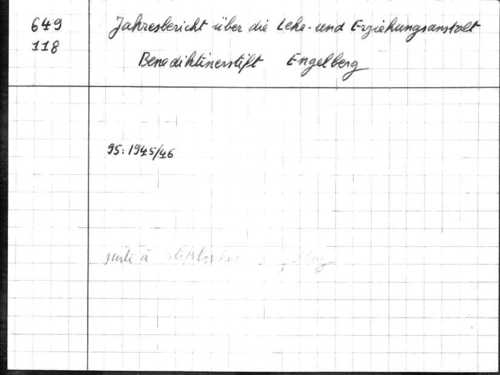 649 Jahresbericht über die Lehr- und Erziehungsanstalt
118 Benediktinerstift Engelberg
95: 1945/46
suite à